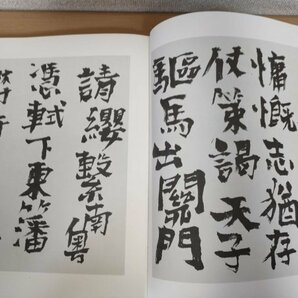 慷慨志猶存
仗策謁天子
驅馬出關門
請纓繫南粤
憑軾下東籓